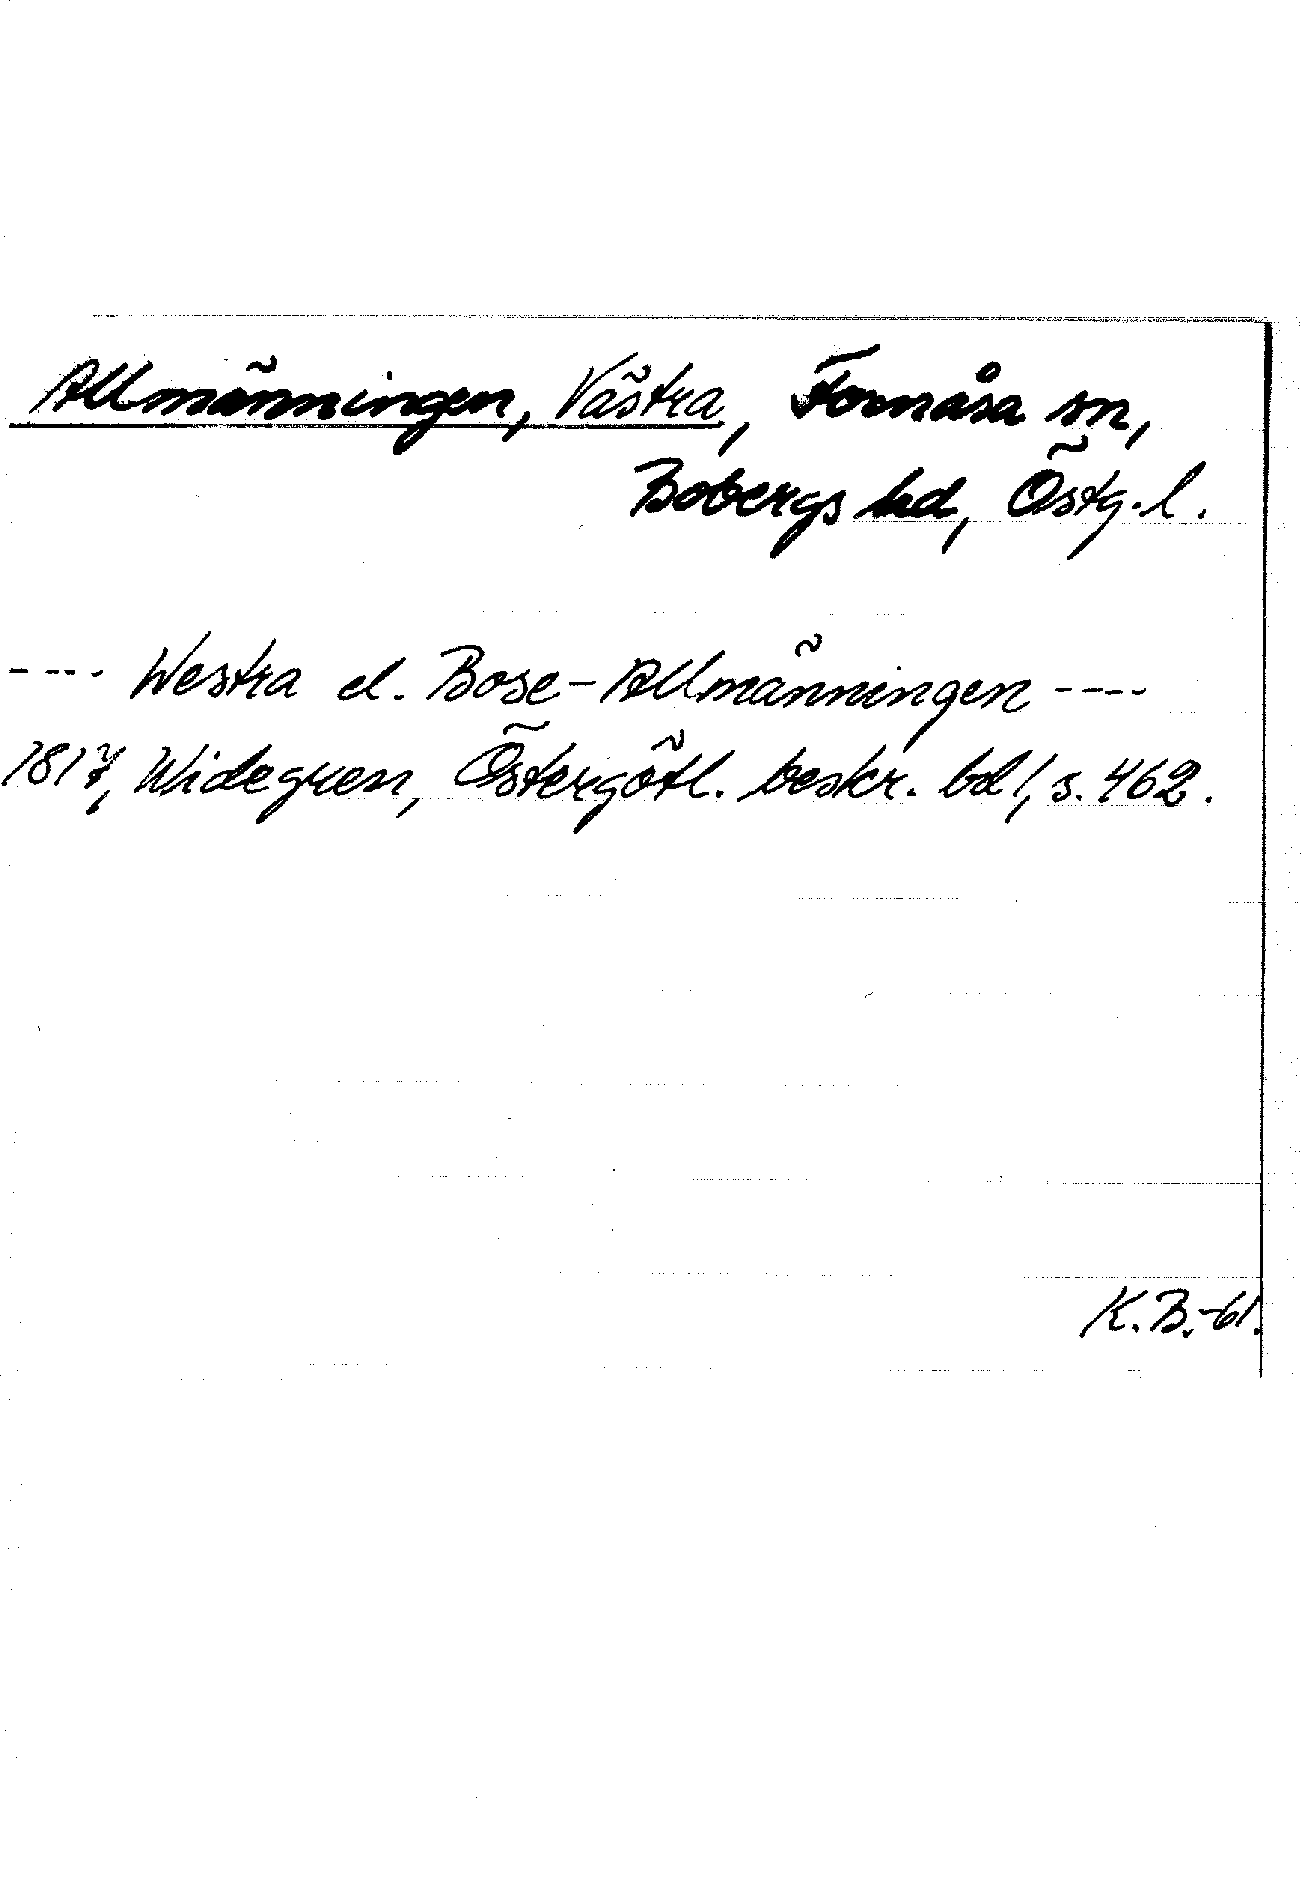 Allmänningen, Västra, Fornåsa sn,
Bobergs hd, Östg. l.
---- Westra el. Bose-Allmänningen ----
1817, Widegren, Östergötl. beskr. bd 1, s. 462.
K. B.-61.